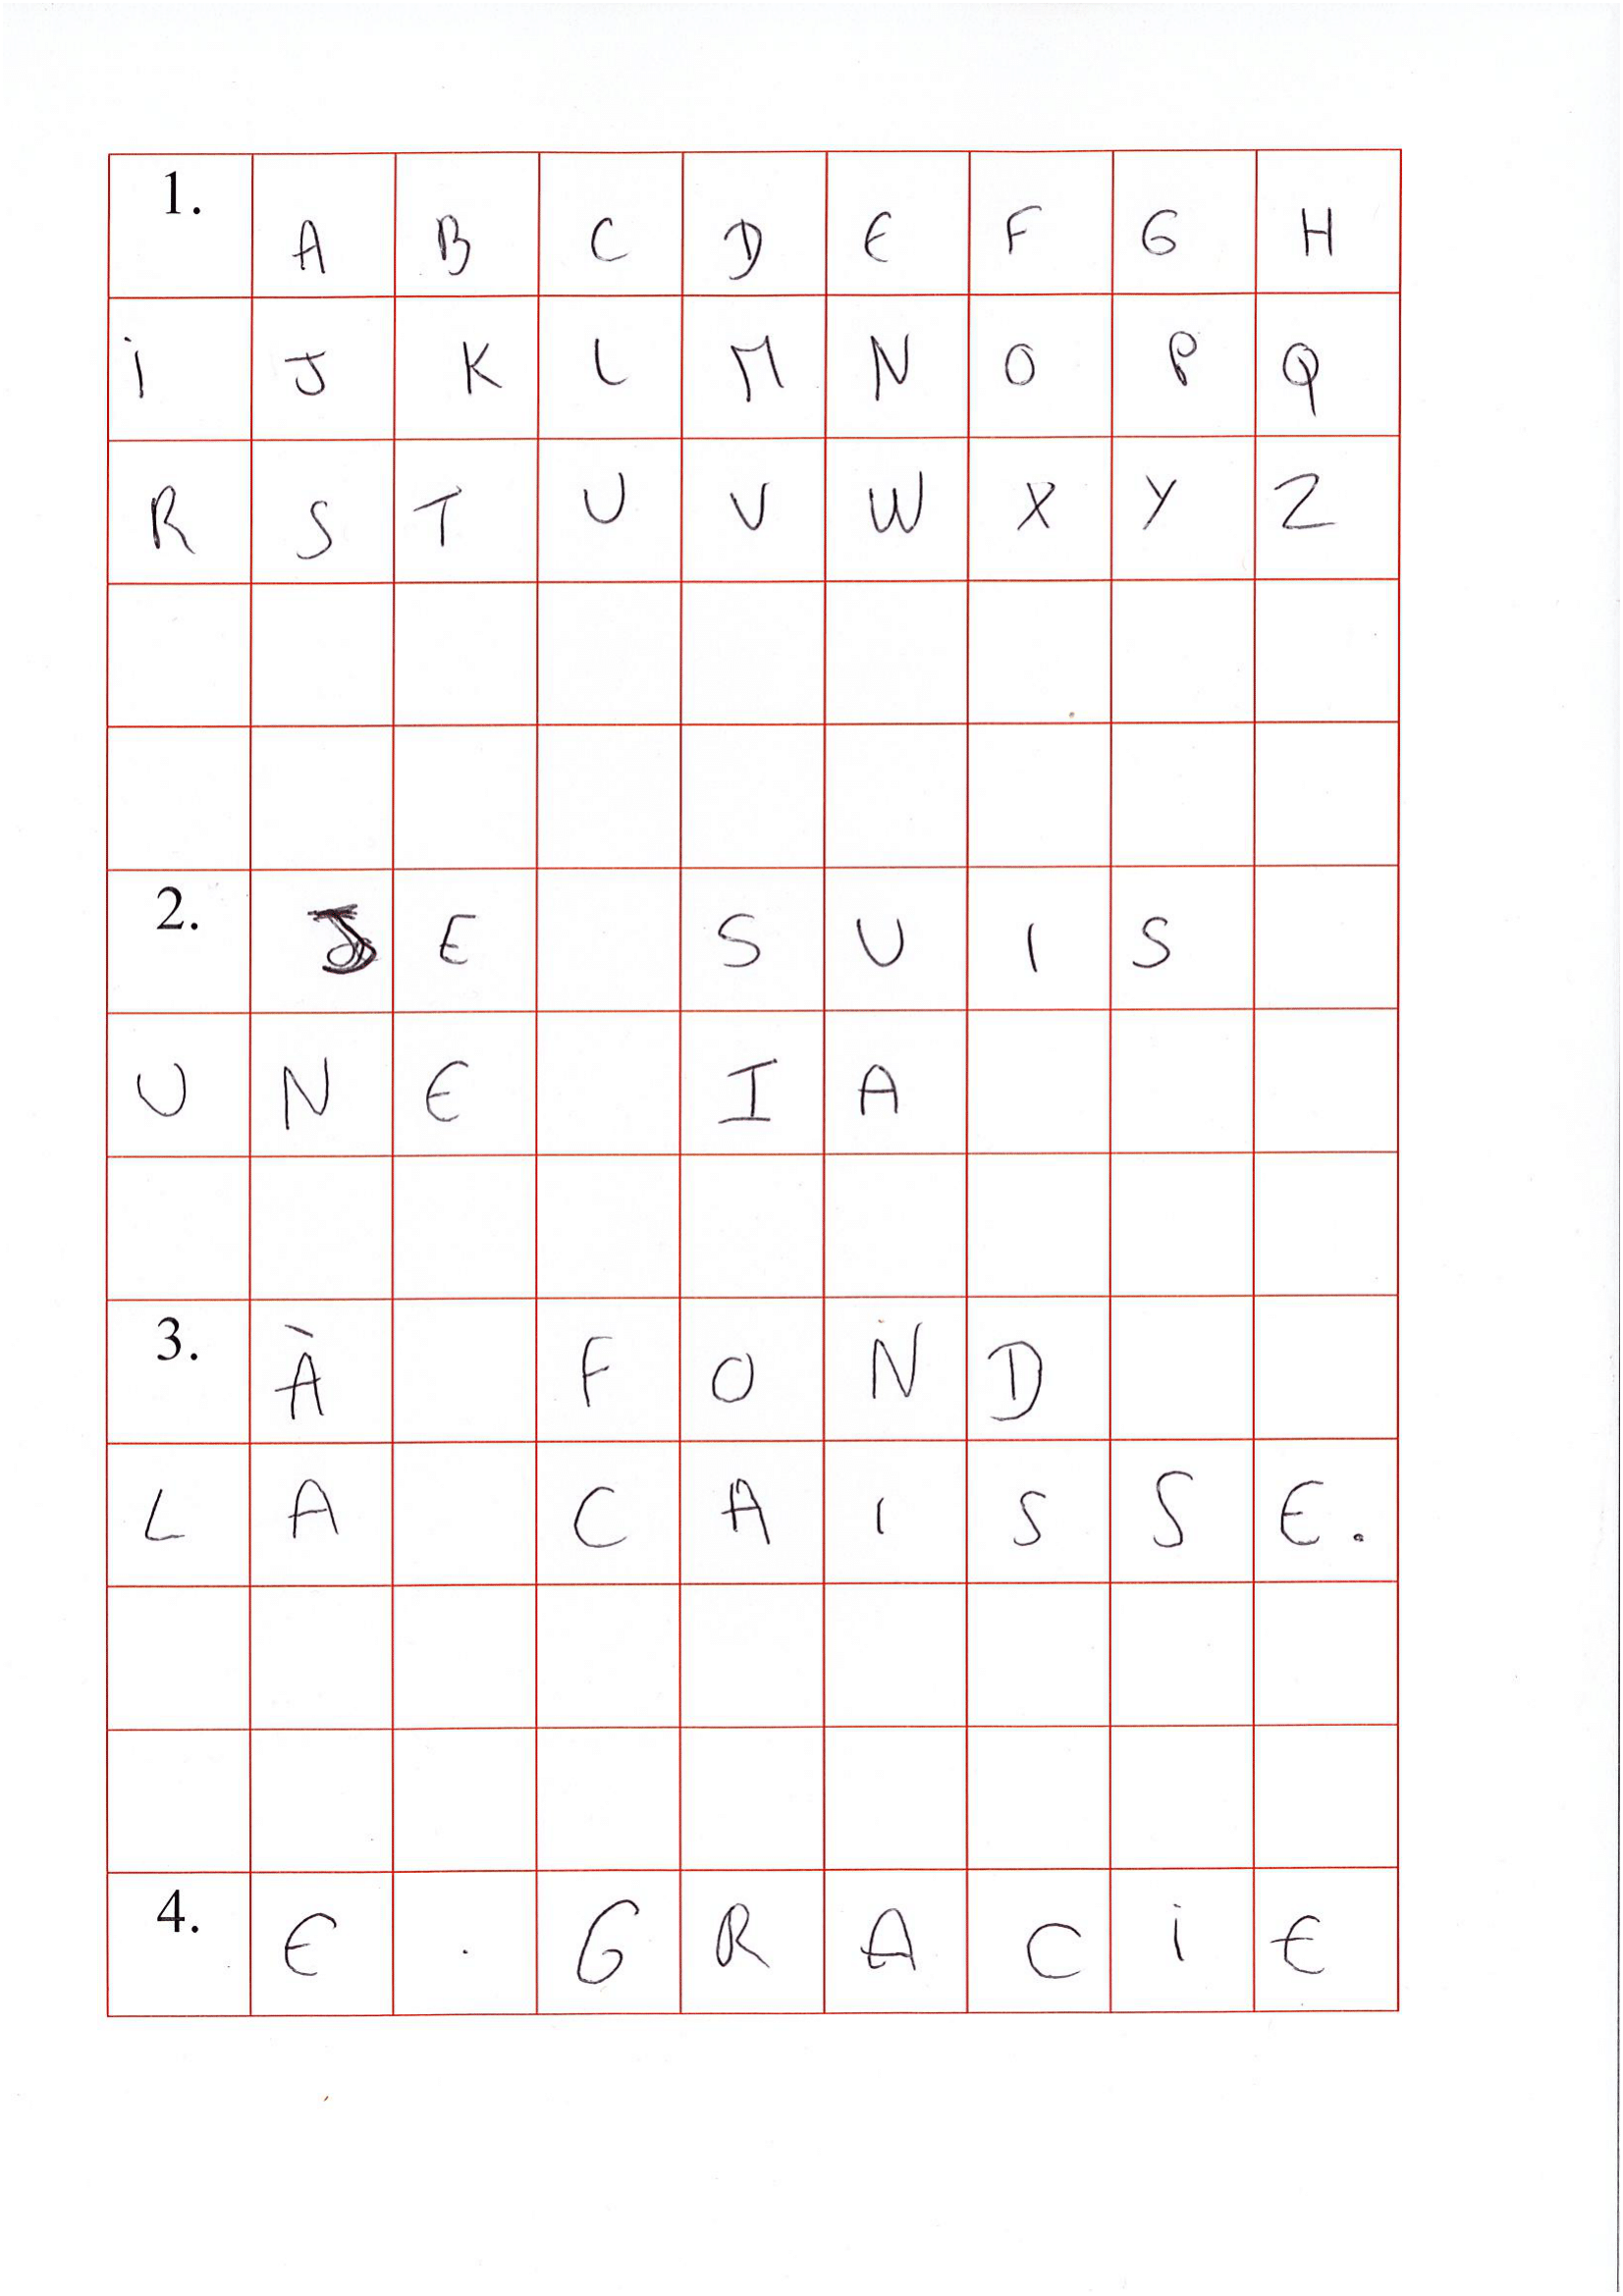 1. A B C D E F G H
i J K L M N O P Q
R S T U V W X Y Z
2. JE SUIS
UNE IA
3. À FOND
LA CAISSE.
4. E. GRACiE